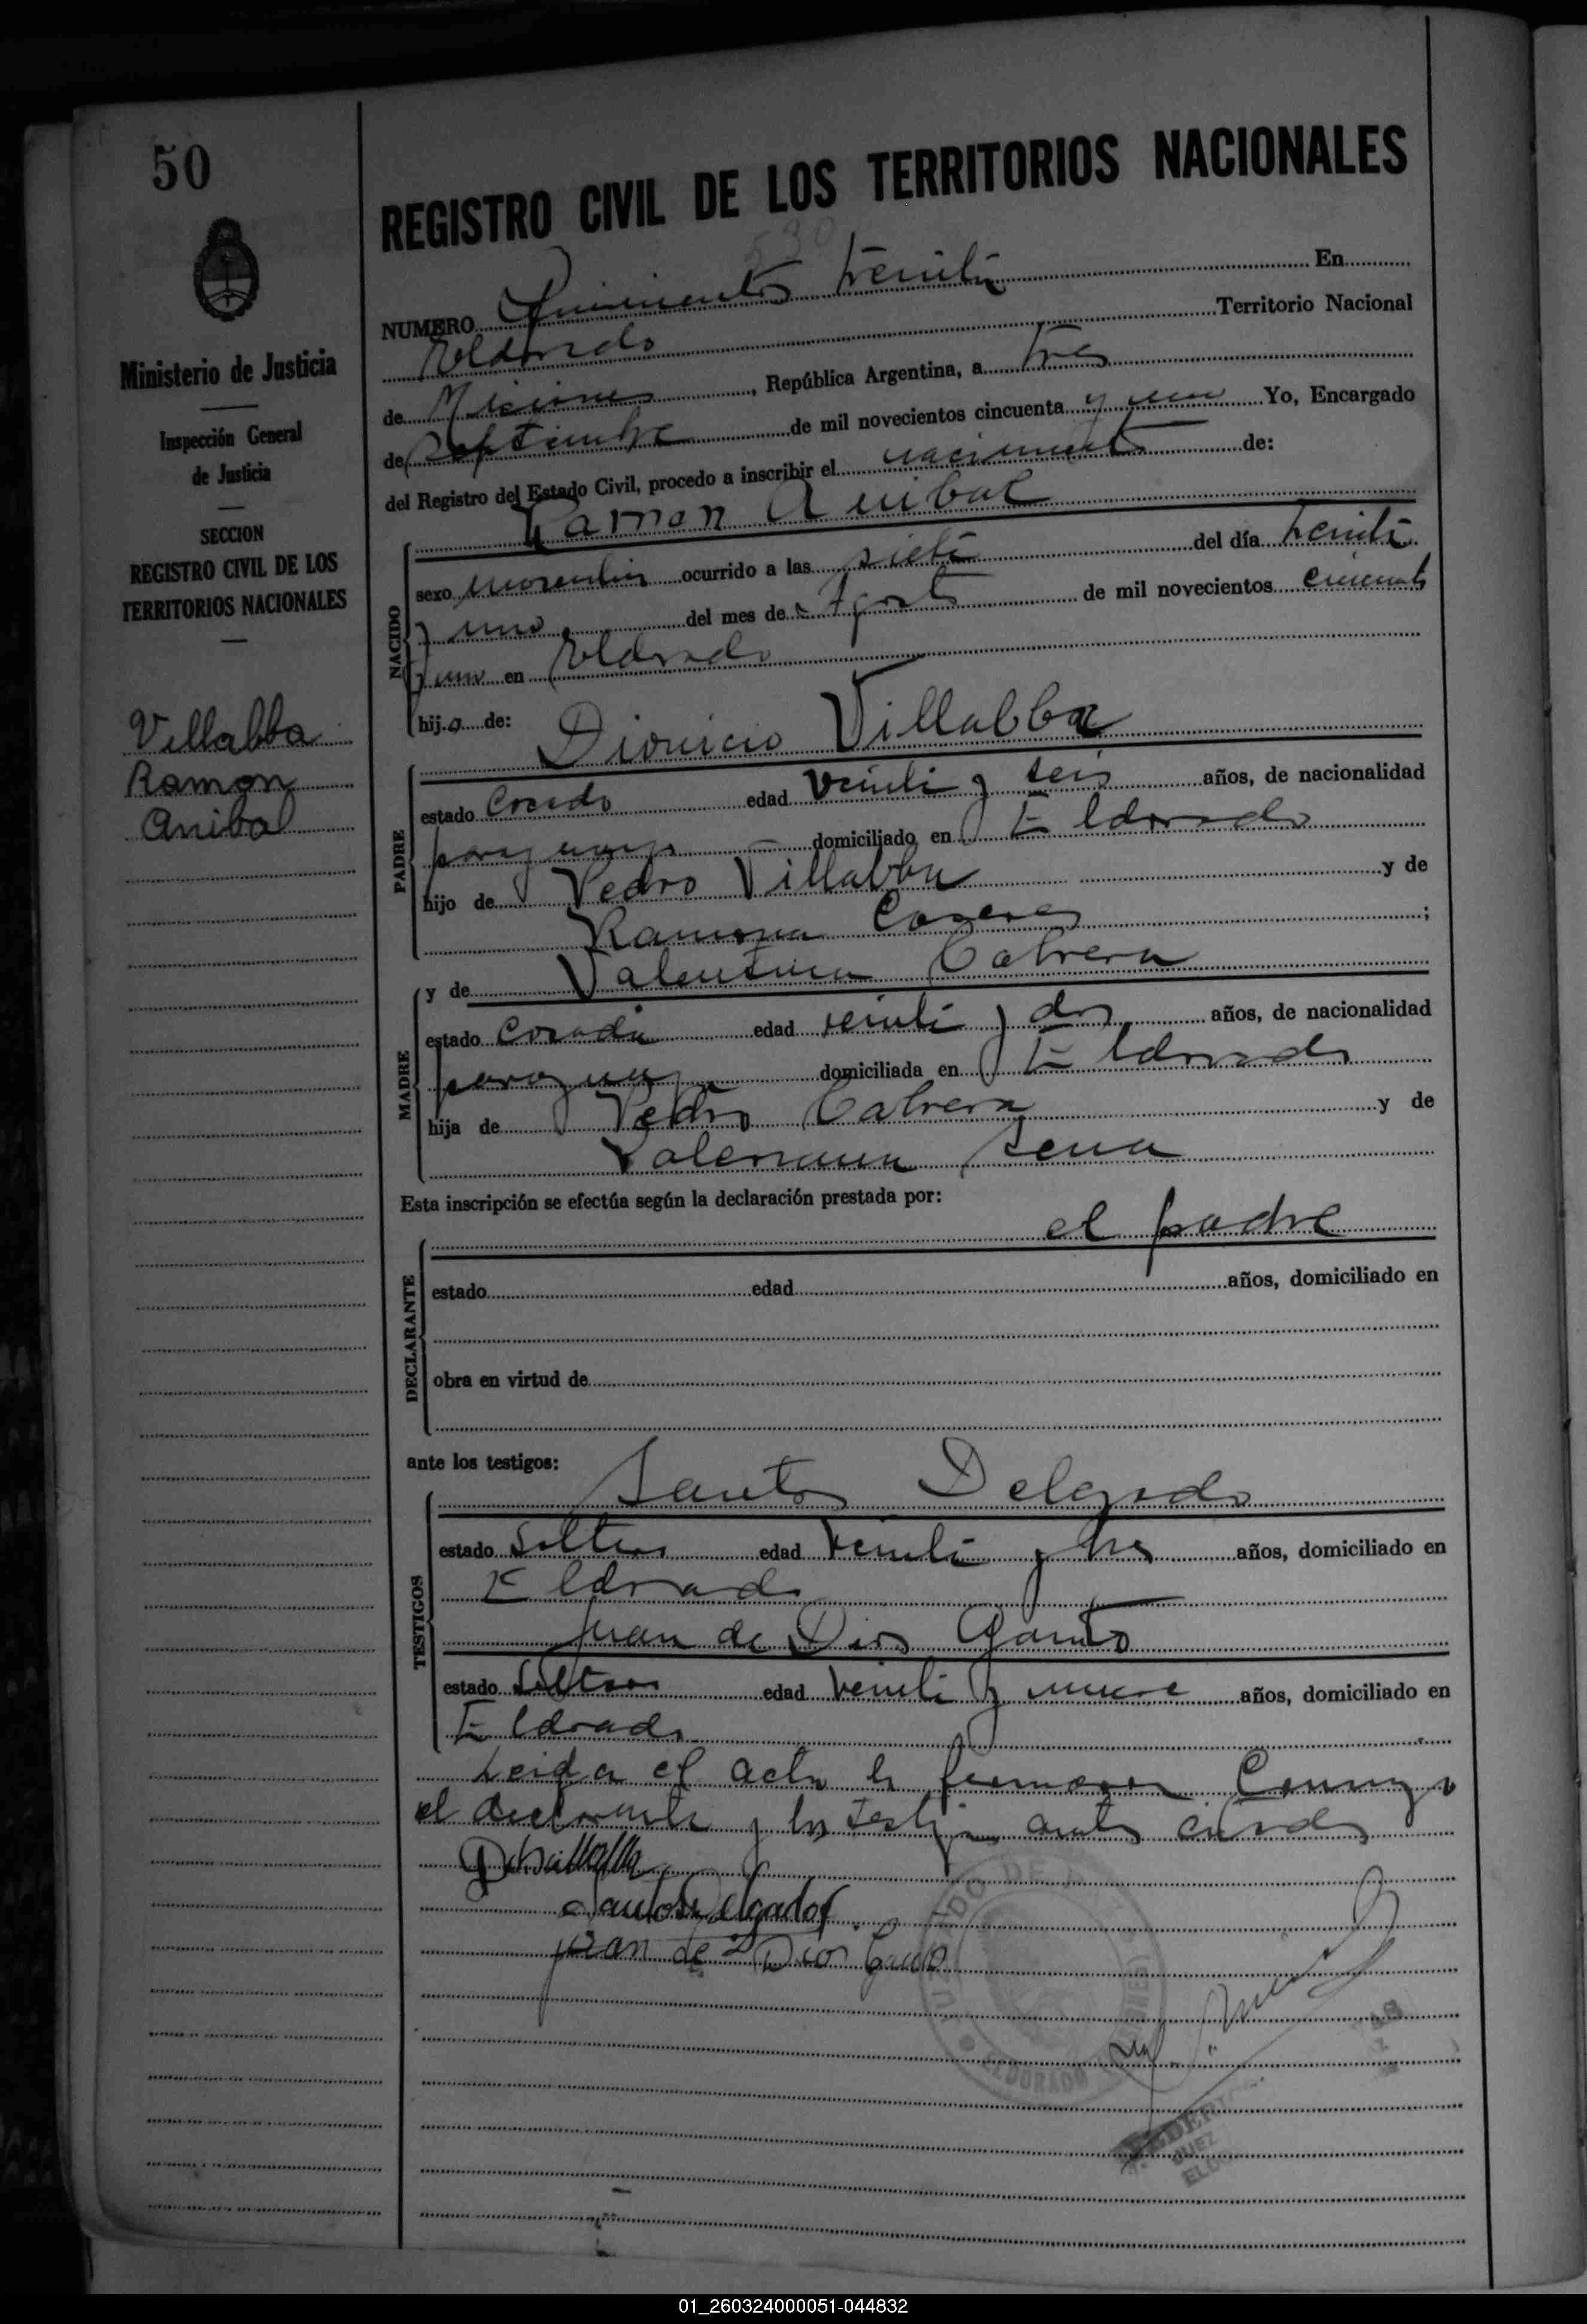 50
Ministerio de Justicia
Inspección General
de Justicia
SECCION
REGISTRO CIVIL DE LOS
TERRITORIOS NACIONALES
Villalba
Ramon
Anibal
REGISTRO CIVIL DE LOS TERRITORIOS NACIONALES
530
NUMERO Quinientos treinta En
Eldorado Territorio Nacional
de Misiones, República Argentina, a tres
de Septiembre de mil novecientos cincuenta y uno Yo, Encargado
del Registro del Estado Civil, procedo a inscribir el nacimiento de:
Ramon Anibal
NACIDO
sexo masculino ocurrido a las siete del día treinta
y uno del mes de Agosto de mil novecientos cincuenta
y uno en Eldorado
hijo de:
Dionicio Villalba
PADRE
estado casado edad veinti y seis años, de nacionalidad
paraguayo domiciliado en Eldorado
hijo de Pedro Villalba y de
Ramona ;
MADRE
y de Valentina Cabrera
estado casada edad veinti y dos años, de nacionalidad
paraguaya domiciliada en Eldorado
hija de Pedro Cabrera y de
Valeriana
Esta inscripción se efectúa según la declaración prestada por:
el padre
DECLARANTE
estado edad años, domiciliado en
obra en virtud de
ante los testigos:
Santos Delgado
TESTIGOS
estado soltero edad veinti y tres años, domiciliado en
Eldorado
Juan de Dios
estado soltero edad veinti y nueve años, domiciliado en
Eldorado
Leida el acta la firmaron conmigo
el declarante y los testigos antes citados
Santos Delgado
Juan de Dios
ELDORADO
JUEZ
01_260324000051-044832